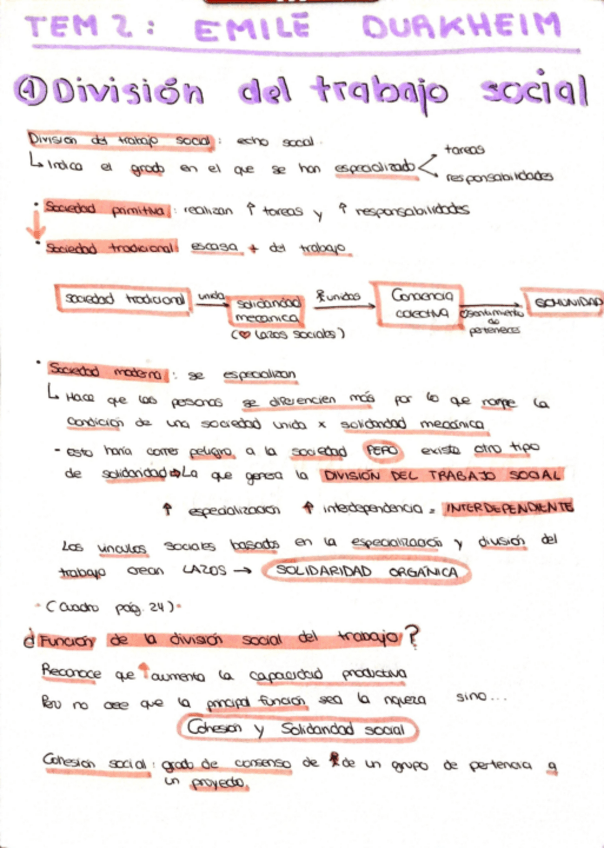 TEM 2: EMILE DURKHEIM
① División del trabajo social
División del trabajo social: echo social.
↳ Indica el grado en el que se han especializado < tareas
responsabilidades
• Sociedad primitiva: realizan ↑ tareas y ↑ responsabilidades
• Sociedad tradicional escasa + del trabajo
sociedad tradicional unida → solidaridad mecanica unidos → Conciencia colectiva sentimiento de pertenecer → COMUNIDAD
(♡ lazos sociales)
• Sociedad moderna: se especializan
↳ Hace que las personas se diferencien más por lo que rompe la
condición de una sociedad unida x solidaridad mecánica
- esto haría correr peligro a la sociedad PERO existe otro tipo
de solidaridad ⇒ La que genera la DIVISIÓN DEL TRABAJO SOCIAL
↑ especialización ↑ interdependencia = INTERDEPENDIENTE
Los vinculos sociales basados en la especialización y división del
trabajo crean LAZOS → SOLIDARIDAD ORGÁNICA
• (Cuadro pág. 24) •
¿Función de la división social del trabajo?
Reconoce que ↑ aumenta la capacidad productiva
Pero no cree que la principal función sea la riqueza sino...
Cohesión y Solidaridad social
Cohesión social: grado de consenso de de un grupo de pertencia a
un proyecto.